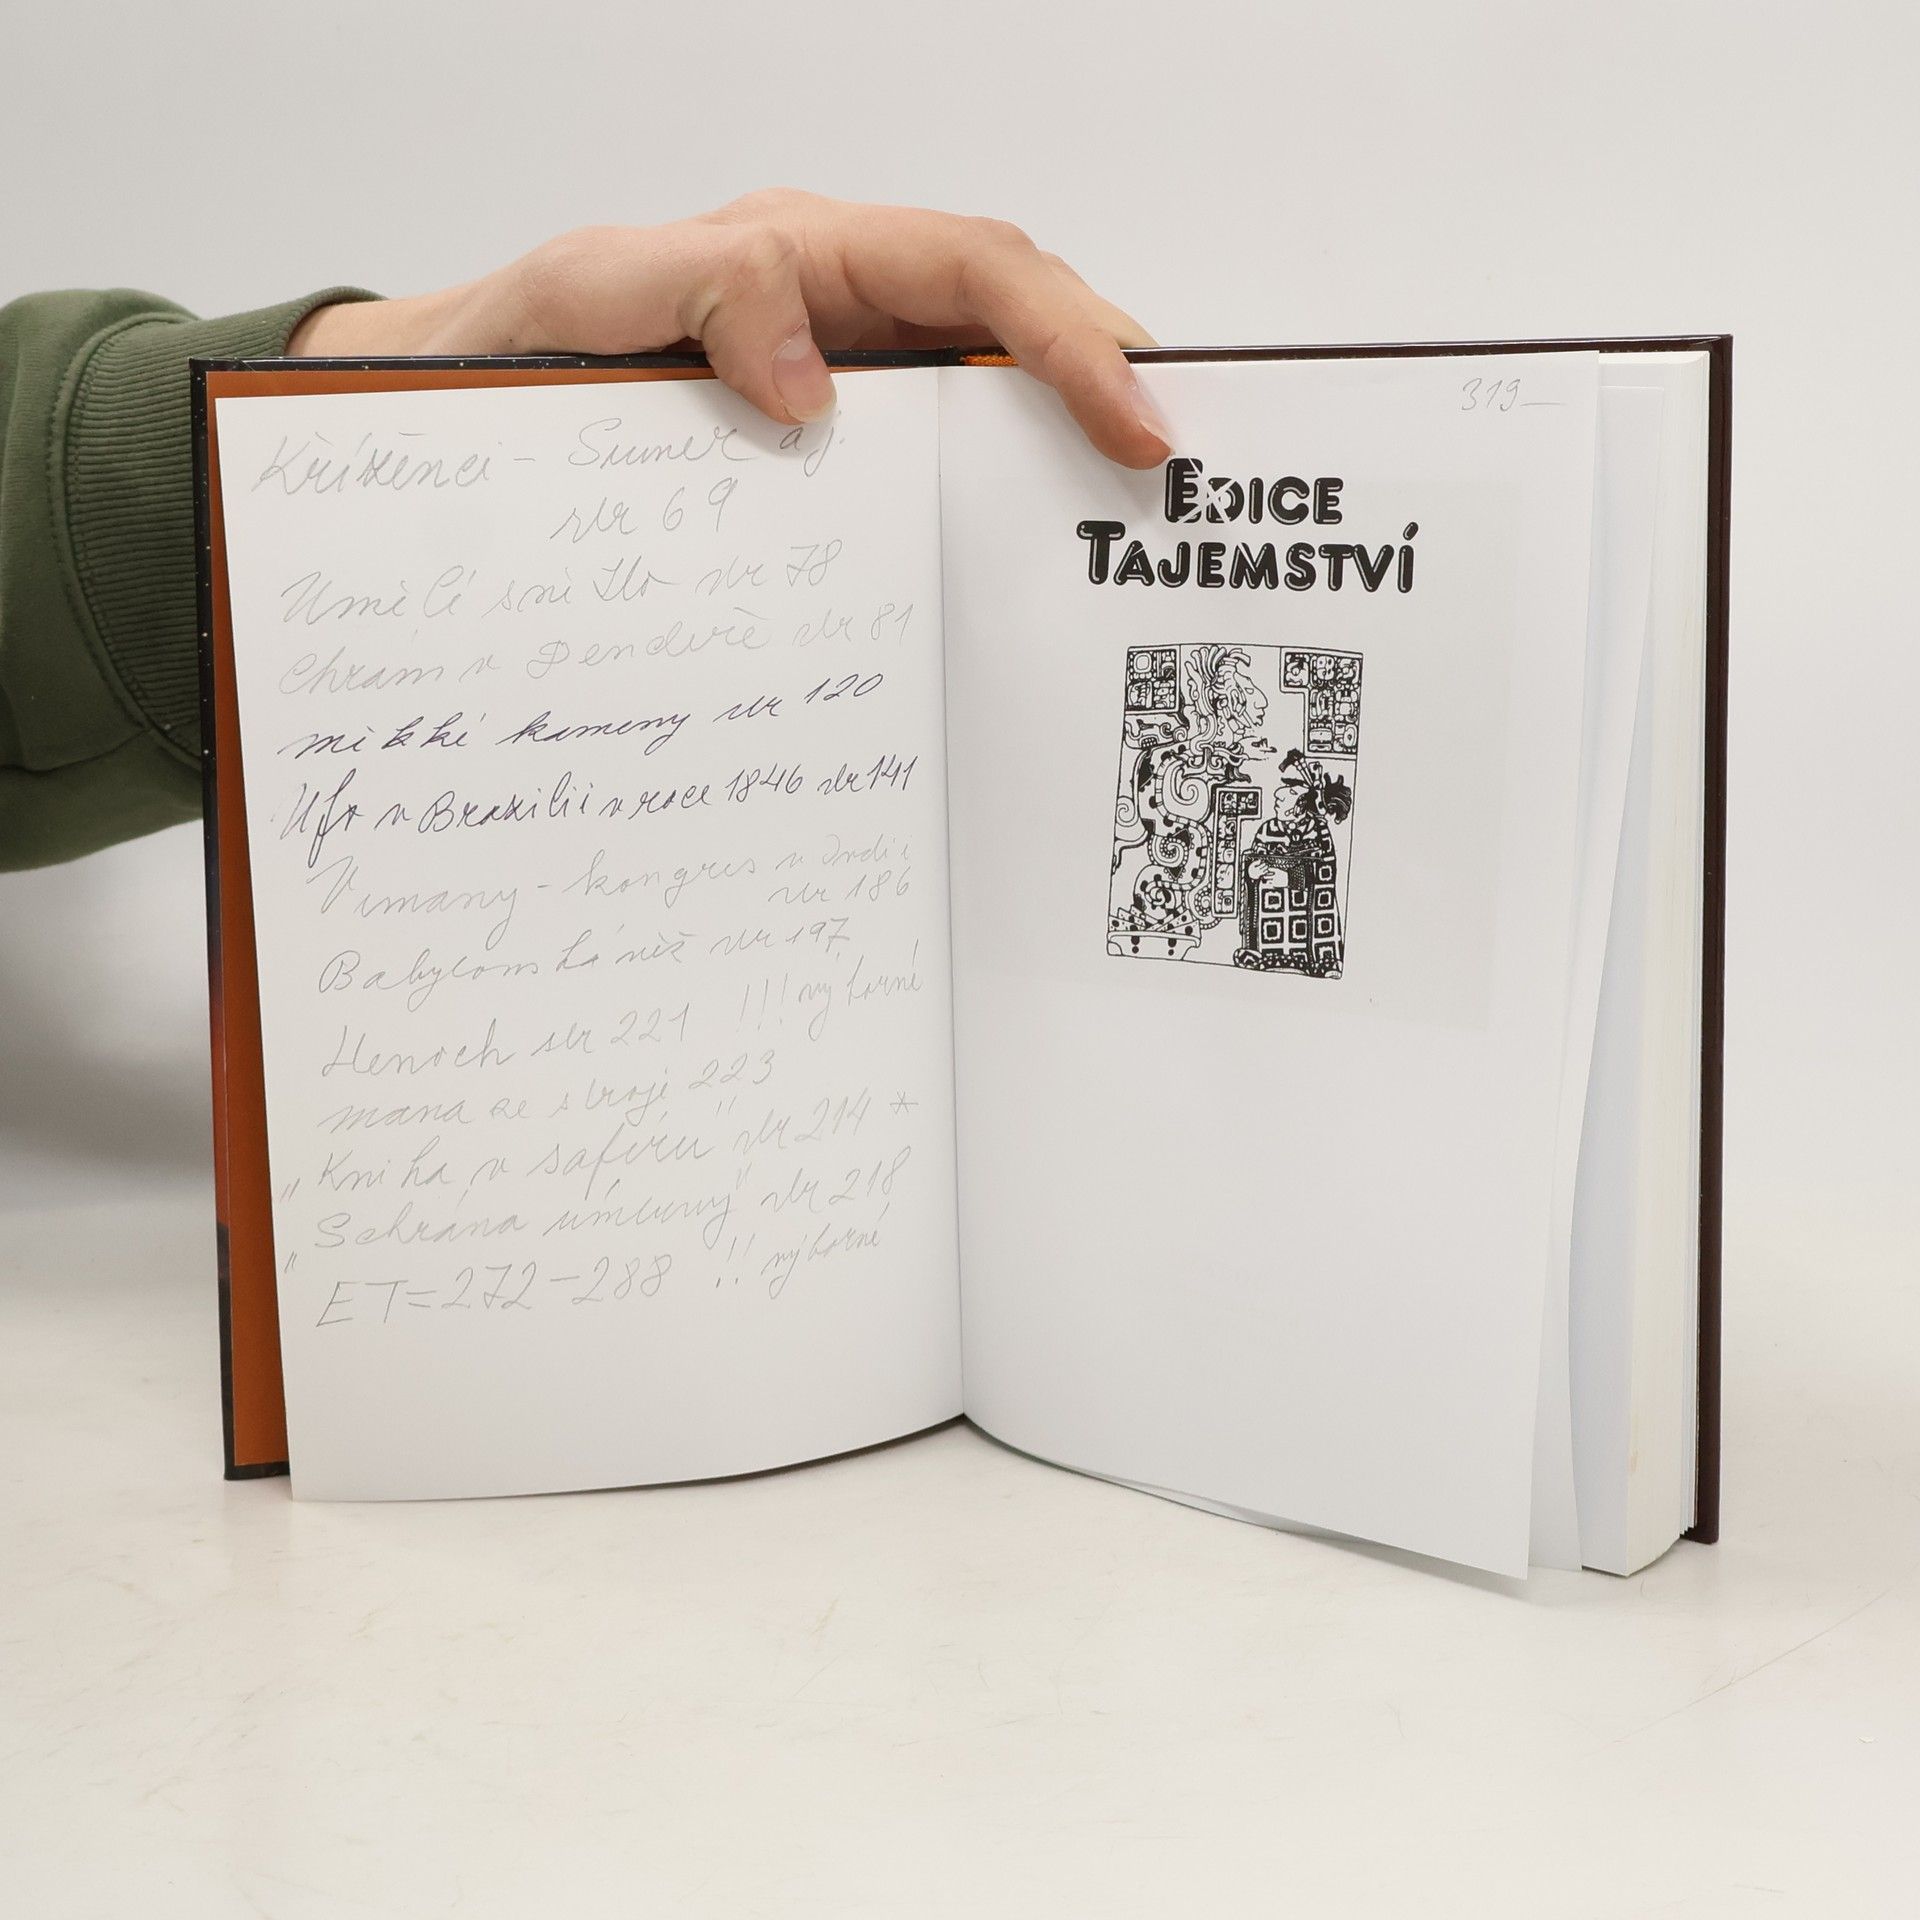 Kříženci - Sumer a j.
str 69
Umělé světlo str 78
Chrám v Dendeře str 81
měkké kameny str 120
Ufo v Brazilii v roce 1846 str 141
Vimany - kongres v Indii
str 186
Babylonská věž str 197
Henoch str 221 !!! výborné
mana ze stroje 223
"Kniha v safíru" str 214 *
"Schrána úmluvy" str 218
ET=272-288 !! výborné
319_
EDICE
TAJEMSTVÍ